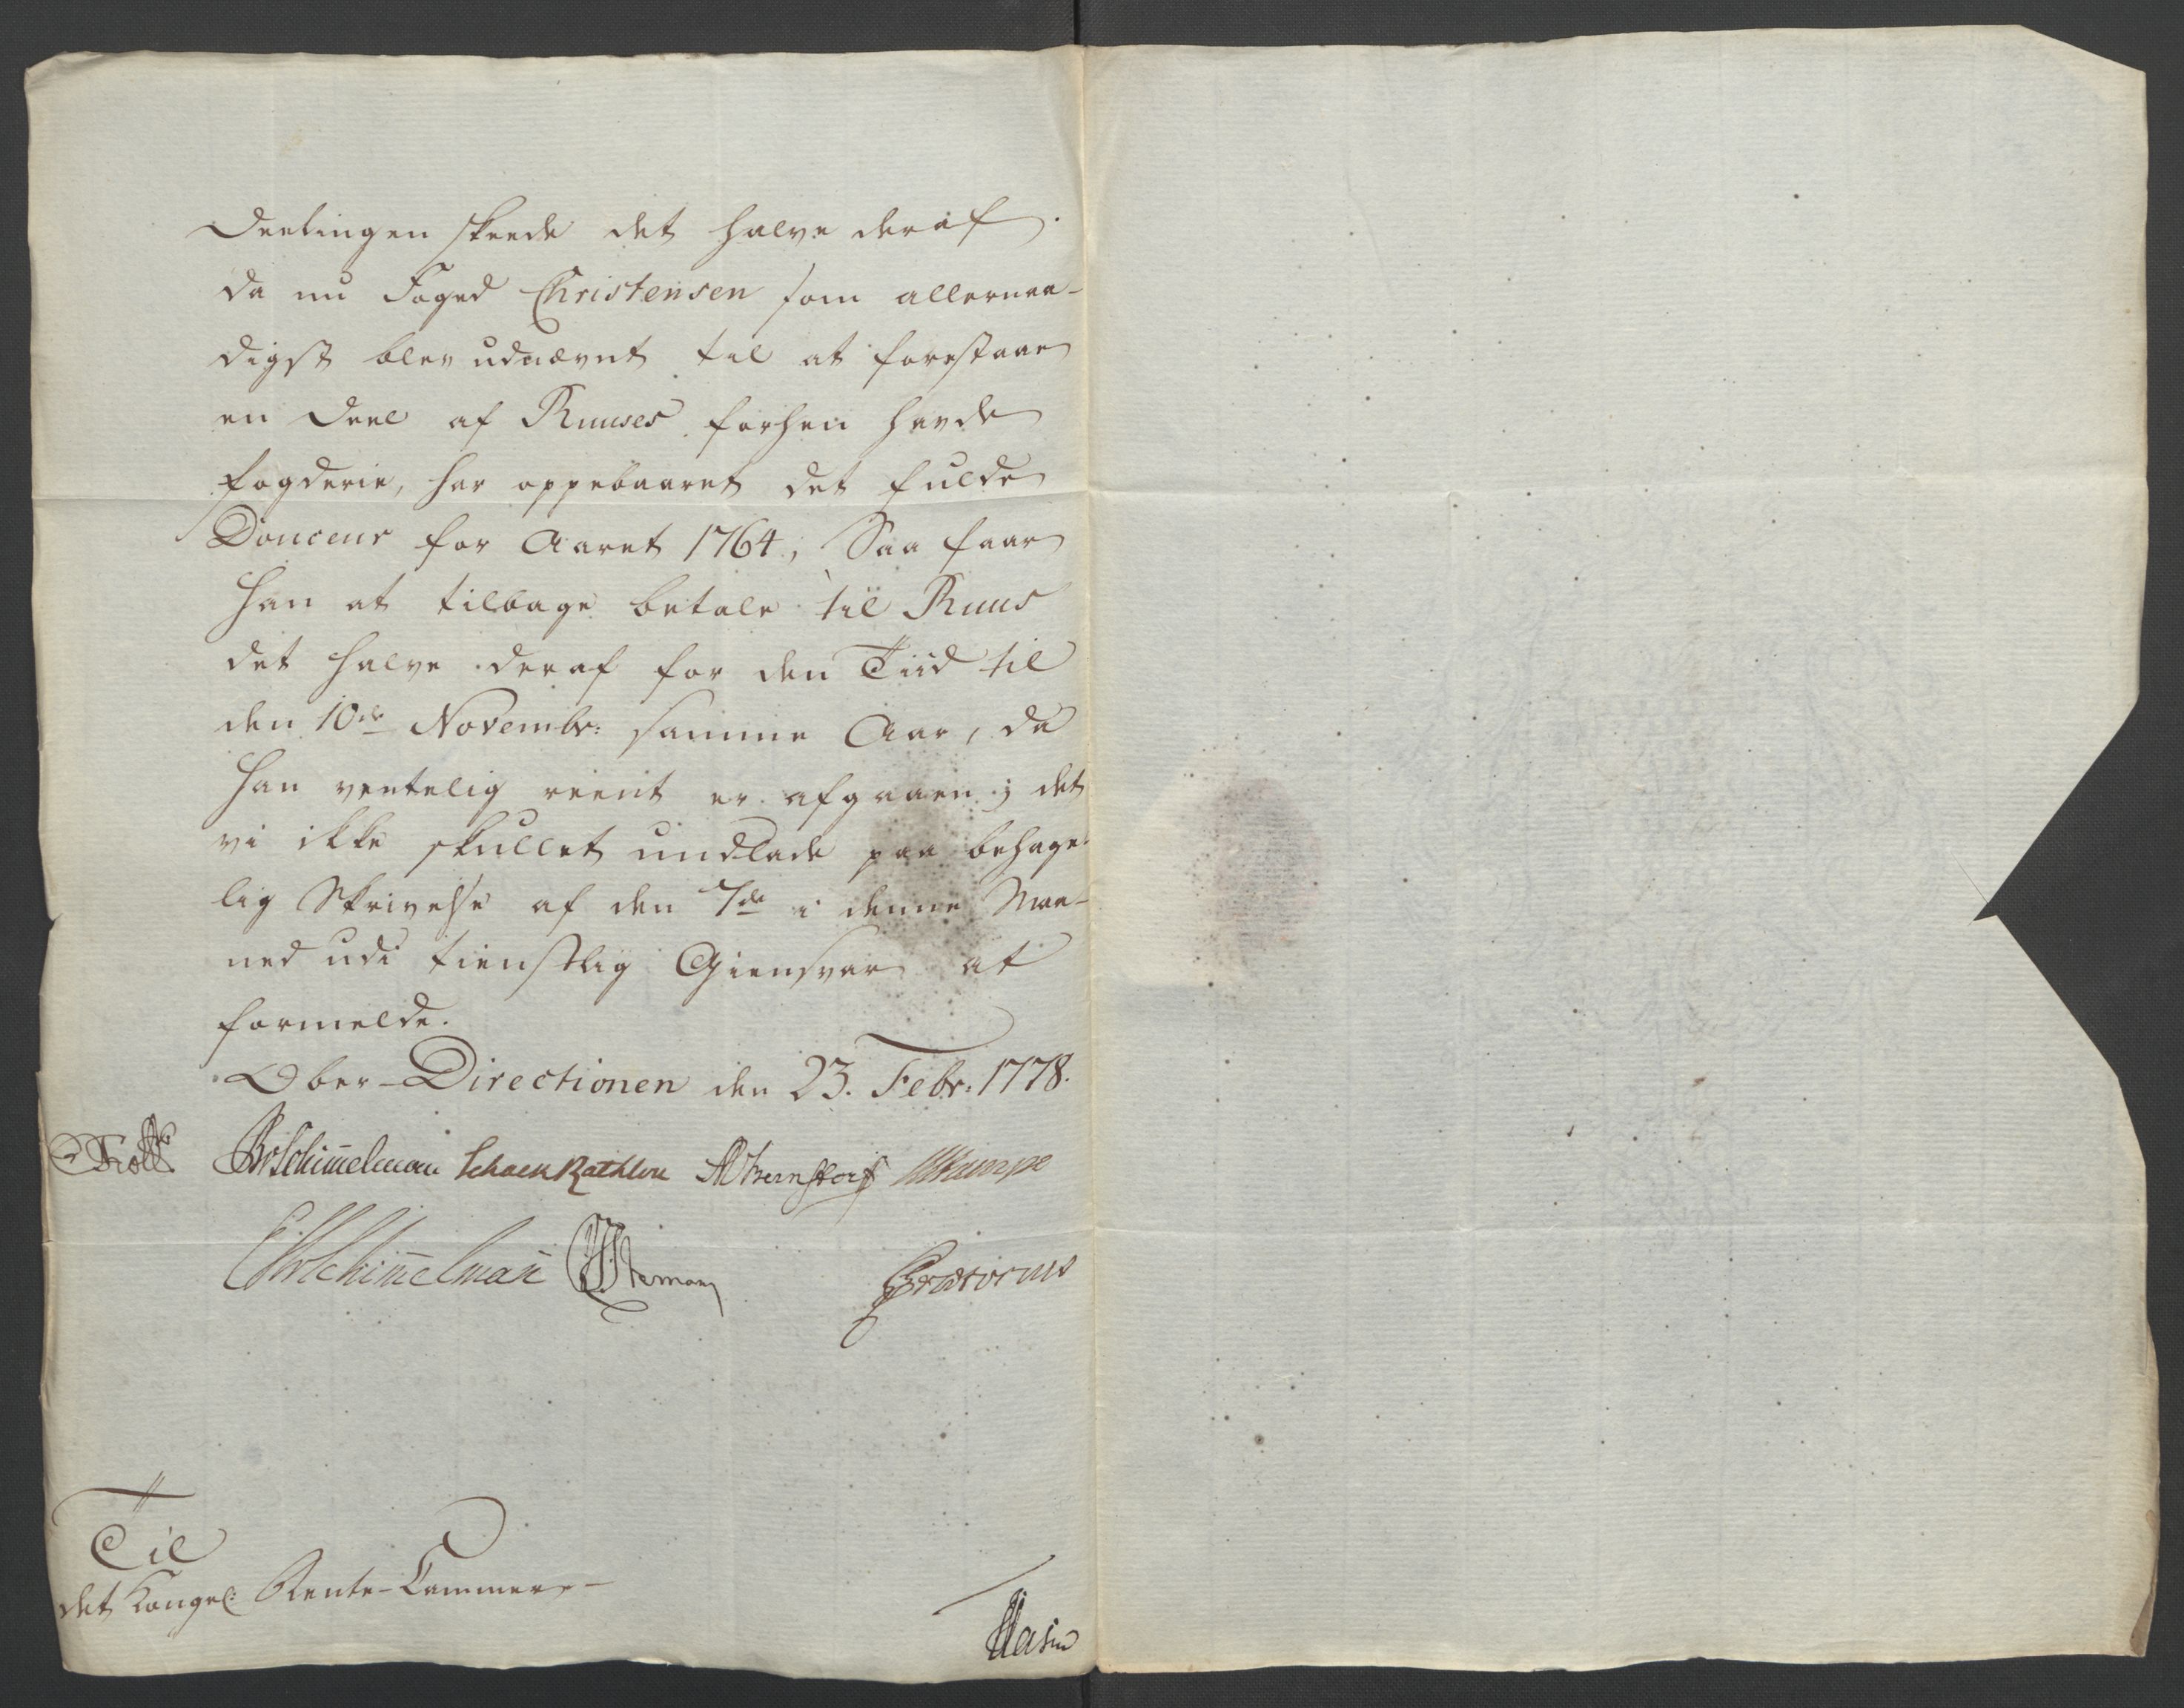 Deelingen skeede det halve deraf.
da nu Foged Christensen som allernaa-
digst blev udnævnt til at forestaae
en Deel af Ruuses forhen havde
Fogderie, har oppebaaret det fulde
Douceur for Aaret 1764, Saa faar
han at tilbage betale til Ruus
det halve deraf for den Tiid til
den 10de Novembr: samme Aar, da
han ventelig reent er afgaaen; det
vi ikke skullet undlade paa behage-
lig Skrivelse af den 7de i denne Maa-
ned udi tienstlig Giensvar at
formelde.
Ober-Directionen den 23. Febr: 1778.
Schimmelman Schack Rathlou Bernstorff
Schimmelman Stemann Prætorius
Til
det Kongel: Rente-Cammer-